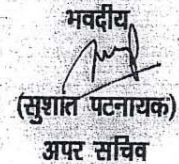 भवदीय
(सुशांत पटनायक)
अपर सचिव